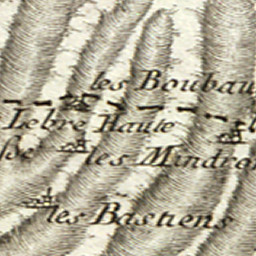 les Boubau
Lebre Haute
les Mindro
les Bastiens